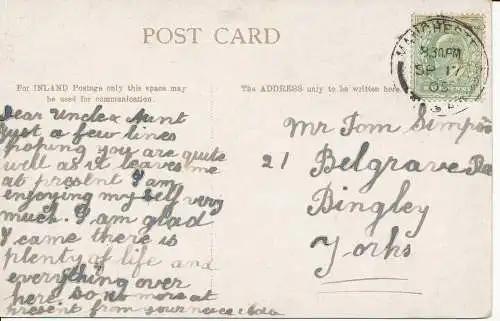 POST CARD
For INLAND Postage only this space may
be used for communication.
The ADDRESS only to be written here
MANCHESTER
8.30PM
SP 17
Dear Uncle & Aunt
Just a few lines
hoping you are quite
well as it leaves me
at present I am
enjoying myself very
much. I am glad
I came there is
plenty of life and
everything over
here. So no more at
present from your niece
Mr Tom Simpson
21 Belgrave
Bingley
Yorks